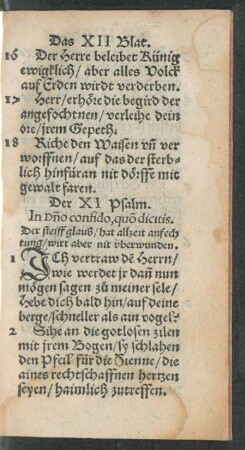 Das XII Blat.
16 Der Herre beleibet Künig
ewigklich/ aber alles Volck
auf Erden wirdt verderben.
17 Herr/ erhöre die begird der
angefochtnen/ verleihe dein
ore/ jrem Gepeth.
18 Richt den Waisen vn̄ ver
worffnen/ auf das der sterb-
lich hinfüran nit dörffe mit
gewalt faren.
Der XI Psalm.
In Dn̄o confido, quō dicitis.
Der steiff glaub/ hat allzeit anfech
tung/ wirt aber nit vberwunden.
1 ICh vertraw dē Herrn/
wie werdet jr dan̄ nun
mögen sagen zů meiner sele/
Hebe dich bald hin/ auf deine
berge/ schneller als ain vogel.
2 Sihe an die gotlosen zilen
mit jrem Bogen/ sy schlahen
den Pfeil für die Zienne/ die
aines rechtschaffnen hertzen
seyen/ haimlich zutreffen.